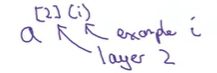 a[2](i) example i
layer 2